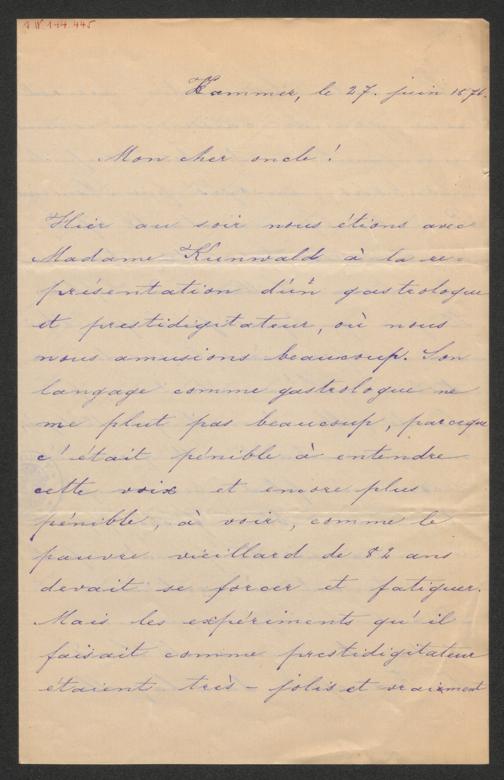 I.N. 144.445
Hammer, le 27. juin 1876.
Mon cher oncle!
Hier au soir nous étions avec
Madame Kunwald à la re-
présentation d'un gastrologue
et prestidigitateur, où nous
nous amusions beaucoup. Son
langage comme gastrologue ne
me plut pas beaucoup, parceque
c'était pénible à entendre
cette voix et encore plus
pénible, à voir, comme le
pauvre vieillard de 82 ans
devait se forcer et fatiguer.
Mais les expériments qu'il
faisait comme prestidigitateur
étaient très-jolis et vraiment